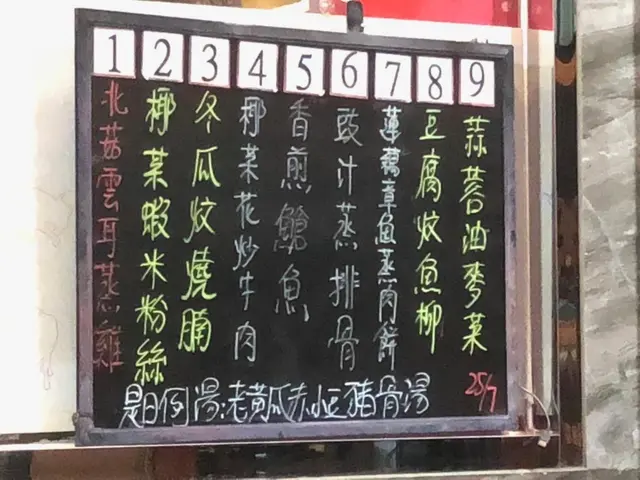 1 2 3 4 5 6 7 8 9
北菇雲耳蒸雞
椰菜蝦米粉絲
冬瓜炆燒腩
椰菜花炒牛肉
香煎鱠魚
豉汁蒸排骨
蓮藕章魚蒸肉餅
豆腐炆魚柳
蒜蓉油麥菜
25/7
是日例湯:老黃瓜赤小豆豬骨湯